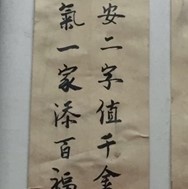 安二字值千金
氣一家添百福